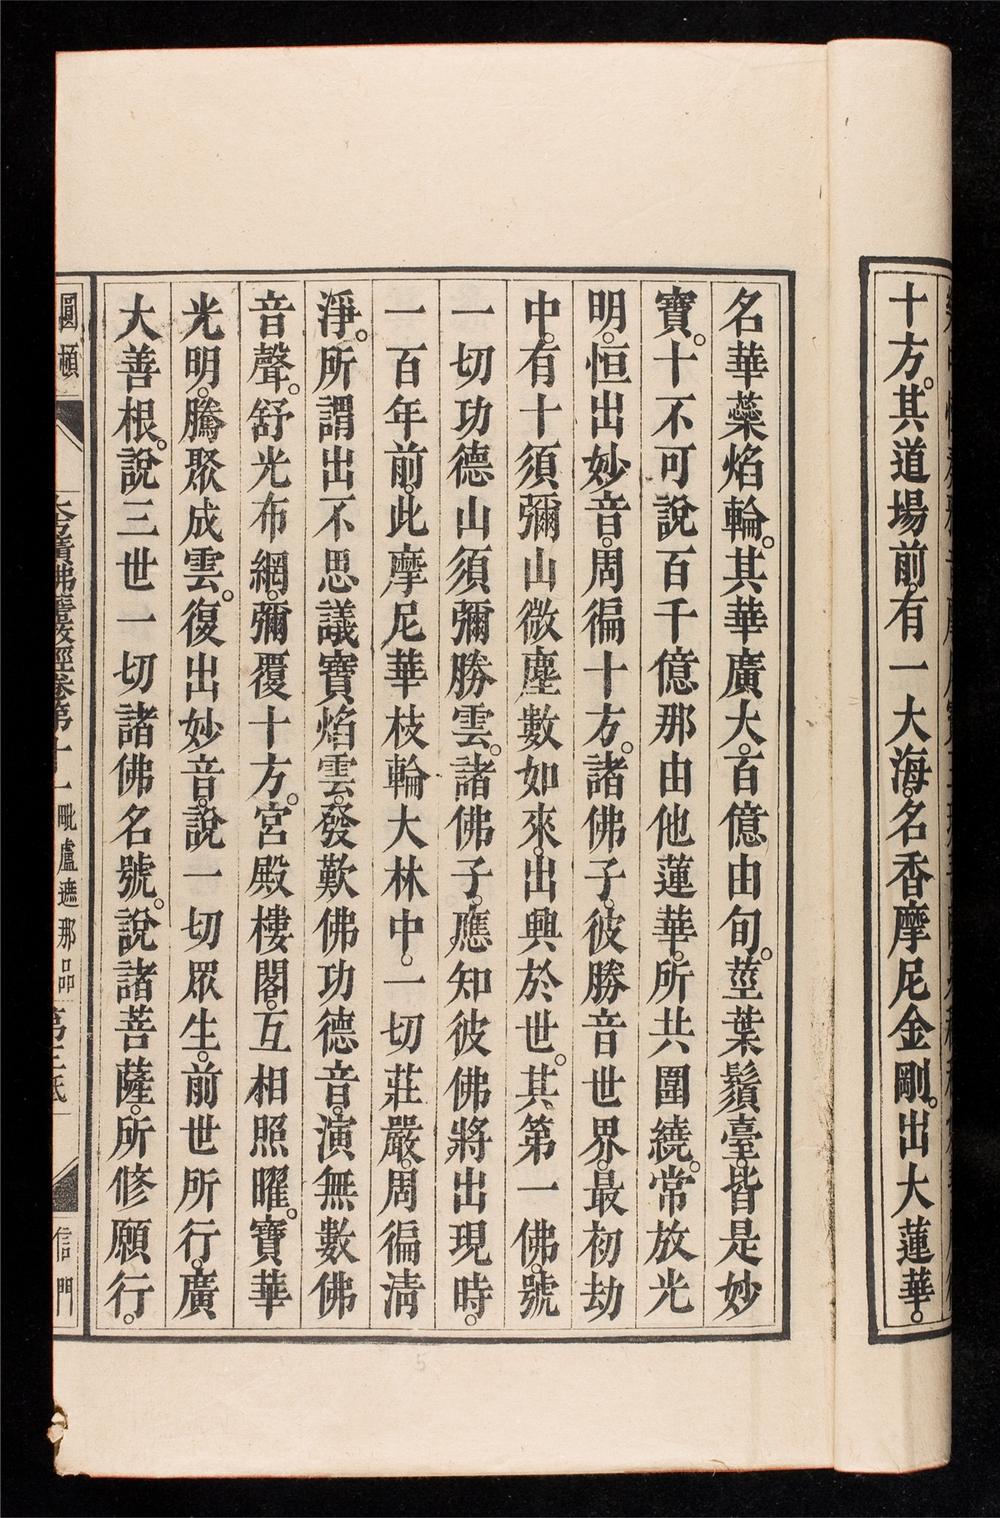 十方。其道場前。有一大海。名香摩尼金剛。出大蓮華。
名華蘂焰輪。其華廣大。百億由旬。莖葉鬚臺。皆是妙
寶。十不可說百千億那由他蓮華。所共圍繞。常放光
明。恒出妙音。周徧十方。諸佛子。彼勝音世界。最初劫
中。有十須彌山微塵數如來。出興於世。其第一佛。號
一切功德山須彌勝雲。諸佛子。應知彼佛將出現時。
一百年前。此摩尼華枝輪大林中。一切莊嚴。周徧清
淨。所謂出不思議寶焰雲。發歎佛功德音。演無數佛
音聲。舒光布網。彌覆十方。宮殿樓閣。互相照曜。寶華
光明。騰聚成雲。復出妙音。說一切眾生。前世所行。廣
大善根。說三世一切諸佛名號。說諸菩薩。所修願行。
圓頓 大方廣佛華嚴經卷第十一 毗盧遮那品 第三 信門